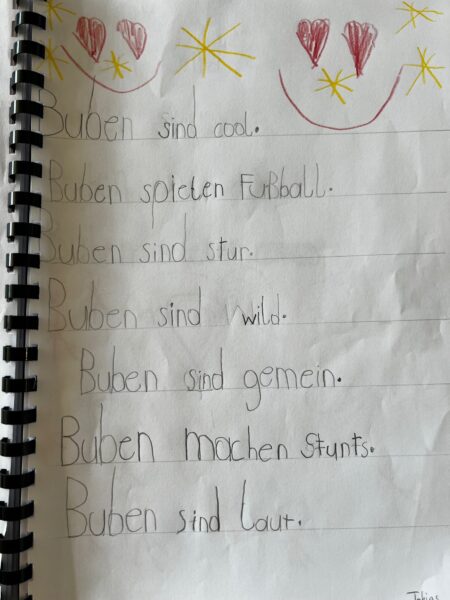 Buben sind cool.
Buben spielen Fußball.
Buben sind stur.
Buben sind wild.
Buben sind gemein.
Buben machen Stunts.
Buben sind laut.
Tobias